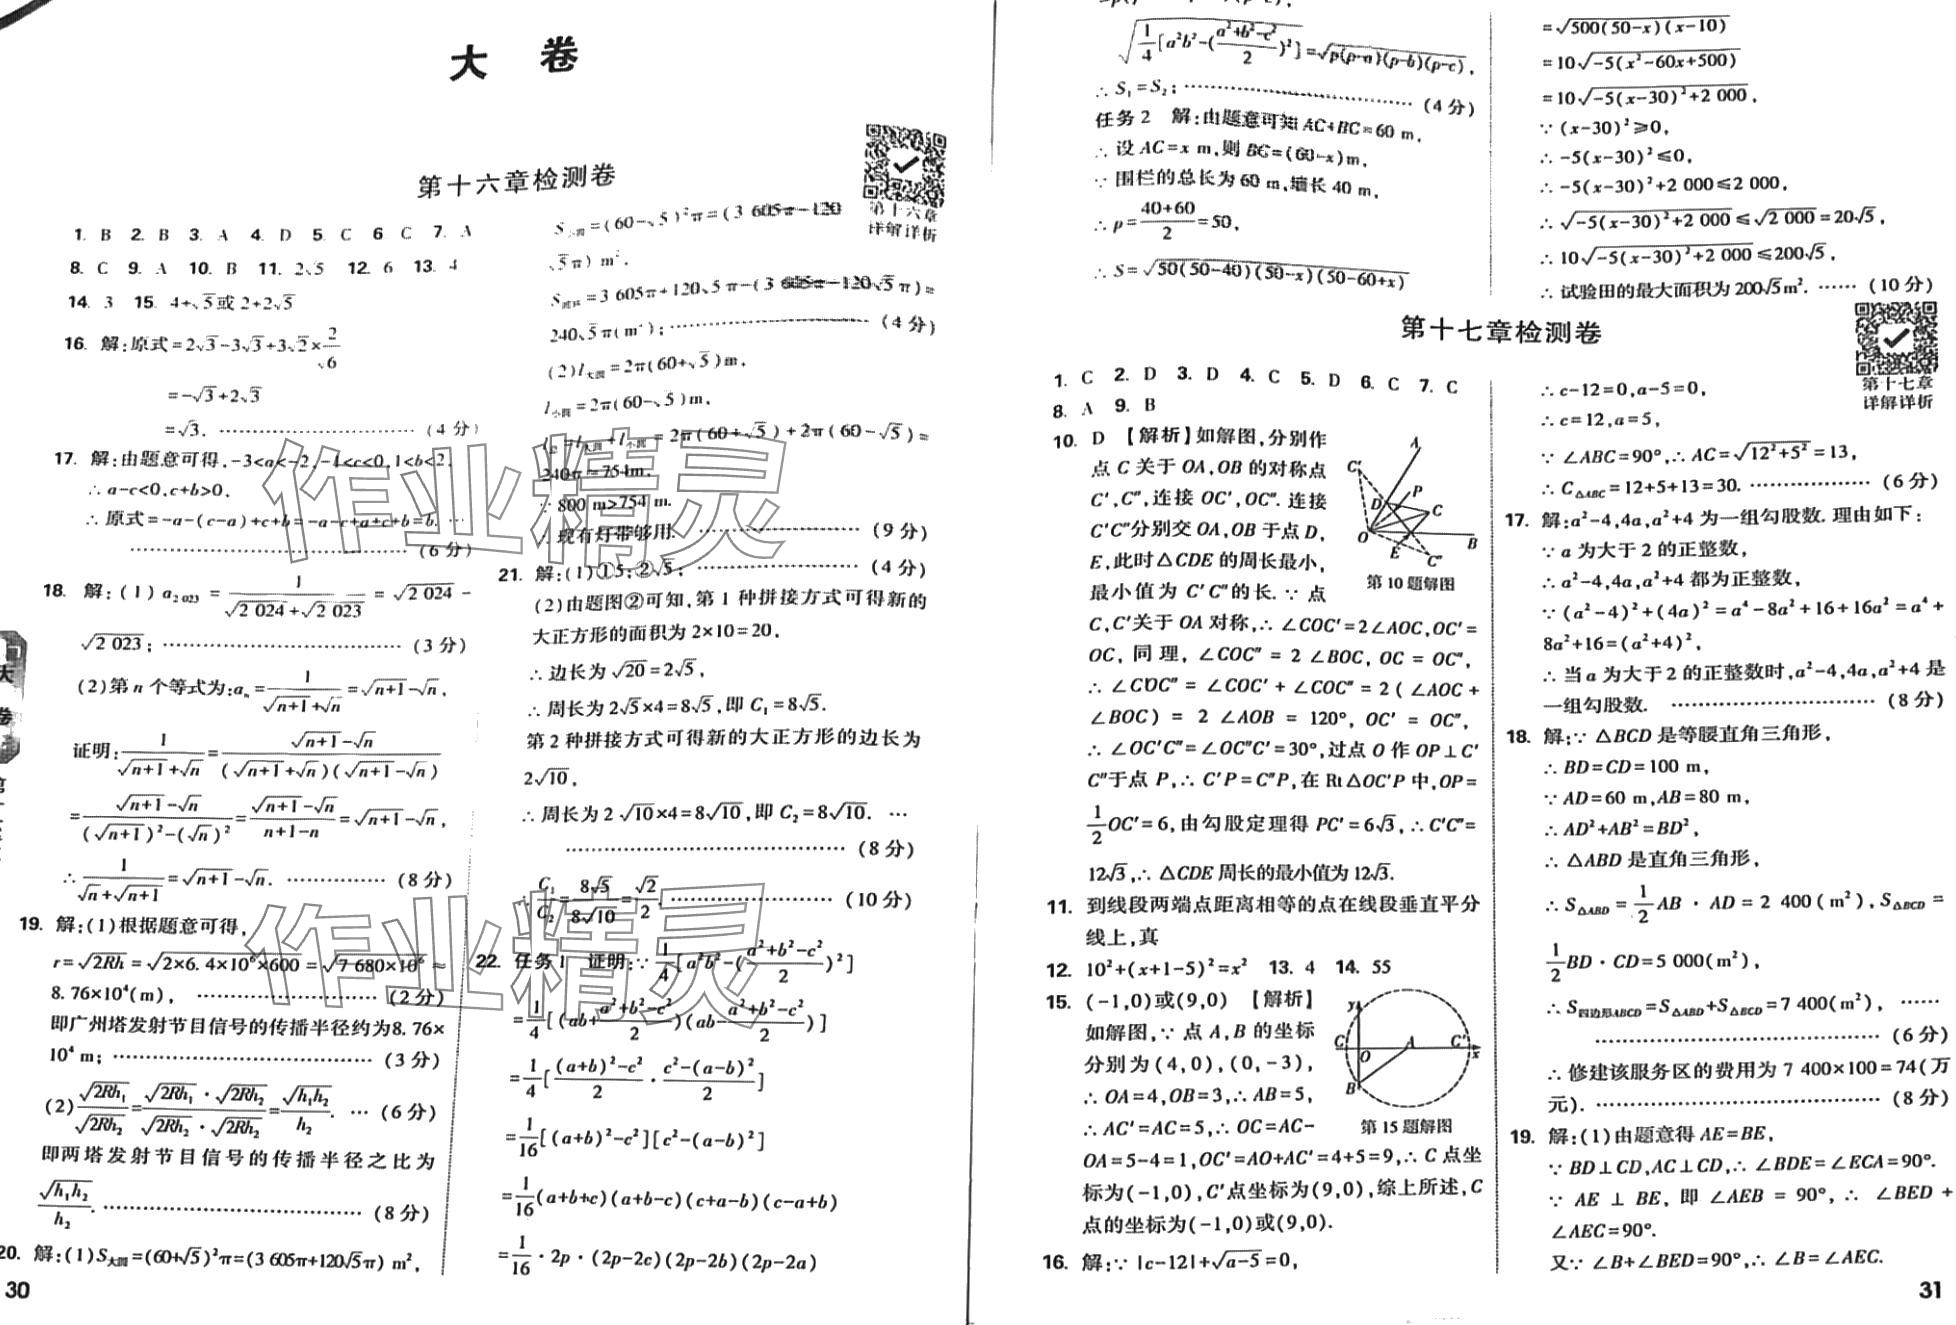 大 卷
第十六章检测卷
第十六章
详解详析
1. B 2. B 3. A 4. D 5. C 6 C 7. A
8. C 9. A 10. B 11. 2√5 12. 6 13. 4
14. 3 15. 4+√5或2+2√5
16. 解:原式=2√3-3√3+3√2×2/√6
=-√3+2√3
=√3. (4分)
17. 解:由题意可得,-3<a<-2,-1<c<0,1<b<2,
∴a-c<0,c+b>0,
∴原式=-a-(c-a)+c+b=-a-c+a+c+b=b. …
(6分)
18. 解:(1)a₂₀₂₃=1/(√2024+√2023)=√2024-
√2023; (3分)
(2)第n个等式为:aₙ=1/(√(n+1)+√n)=√(n+1)-√n,
证明:1/(√(n+1)+√n)=(√(n+1)-√n)/((√(n+1)+√n)(√(n+1)-√n))
=(√(n+1)-√n)/((√(n+1))²-(√n)²)=(√(n+1)-√n)/(n+1-n)=√(n+1)-√n,
∴1/(√n+√(n+1))=√(n+1)-√n. (8分)
19. 解:(1)根据题意可得,
r=√2Rh=√(2×6.4×10⁶×600)=√(7 680×10⁶)≈
8.76×10⁴(m), (2分)
即广州塔发射节目信号的传播半径约为8.76×
10⁴ m; (3分)
(2)√2Rh₁/√2Rh₂=(√2Rh₁·√2Rh₂)/(√2Rh₂·√2Rh₂)=√h₁h₂/h₂. … (6分)
即两塔发射节目信号的传播半径之比为
√h₁h₂/h₂. (8分)
20. 解:(1)S大圆=(60+√5)²π=(3 605π+120√5π) m²,
30
S小圆=(60-√5)²π=(3 605π-120
√5π) m².
S圆环=3 605π+120√5π-(3 605π-120√5π)=
240√5π(m²); (4分)
(2)l大圆=2π(60+√5)m,
l小圆=2π(60-√5)m,
l总=l大圆+l小圆=2π(60+√5)+2π(60-√5)=
240π≈754m.
∵800 m>754 m.
∴现有灯带够用. (9分)
21. 解:(1)①5;②√5; (4分)
(2)由题图②可知,第1种拼接方式可得新的
大正方形的面积为2×10=20,
∴边长为√20=2√5,
∴周长为2√5×4=8√5,即C₁=8√5.
第2种拼接方式可得新的大正方形的边长为
2√10,
∴周长为2√10×4=8√10,即C₂=8√10. …
(8分)
C₁/C₂=8√5/8√10=√2/2. (10分)
22. 任务1 证明:∵1/4[a²b²-((a²+b²-c²)/2)²]
=1/4[(ab+(a²+b²-c²)/2)(ab-(a²+b²-c²)/2)]
=1/4[((a+b)²-c²)/2·(c²-(a-b)²)/2]
=1/16[(a+b)²-c²][c²-(a-b)²]
=1/16(a+b+c)(a+b-c)(c+a-b)(c-a+b)
=1/16·2p·(2p-2c)(2p-2b)(2p-2a)
√(1/4[a²b²-((a²+b²-c²)/2)²])=√(p(p-a)(p-b)(p-c)),
∴S₁=S₂; (4分)
任务2 解:由题意可知AC+BC=60 m,
∴设AC=x m,则BC=(60-x)m,
∵围栏的总长为60 m,墙长40 m,
∴p=(40+60)/2=50,
∴S=√(50(50-40)(50-x)(50-60+x))
=√(500(50-x)(x-10))
=10√(-5(x²-60x+500))
=10√(-5(x-30)²+2 000),
∵(x-30)²≥0,
∴-5(x-30)²≤0,
∴-5(x-30)²+2 000≤2 000,
∴√(-5(x-30)²+2 000)≤√2 000=20√5,
∴10√(-5(x-30)²+2 000)≤200√5,
∴试验田的最大面积为200√5m². …… (10分)
第十七章检测卷
第十七章
详解详析
1. C 2. D 3. D 4. C 5. D 6. C 7. C
8. A 9. B
10. D 【解析】如解图,分别作
点C关于OA,OB的对称点
C′,C″,连接OC′,OC″.连接
C′C″分别交OA,OB于点D,
E,此时△CDE的周长最小,
最小值为C′C″的长.∵点
A C′ P D C O E C″ B
第10题解图
C,C′关于OA对称,∴∠COC′=2∠AOC,OC′=
OC,同理,∠COC″=2∠BOC,OC=OC″,
∴∠C′OC″=∠COC′+∠COC″=2(∠AOC+
∠BOC)=2∠AOB=120°,OC′=OC″,
∴∠OC′C″=∠OC″C′=30°,过点O作OP⊥C′
C″于点P,∴C′P=C″P,在Rt△OC′P中,OP=
1/2OC′=6,由勾股定理得PC′=6√3,∴C′C″=
12√3,∴△CDE周长的最小值为12√3.
11. 到线段两端点距离相等的点在线段垂直平分
线上,真
12. 10²+(x+1-5)²=x² 13. 4 14. 55
15. (-1,0)或(9,0) 【解析】
如解图,∵点A,B的坐标
分别为(4,0),(0,-3),
∴OA=4,OB=3,∴AB=5,
∴AC′=AC=5,∴OC=AC-
y C O A C′ x B
第15题解图
OA=5-4=1,OC′=AO+AC′=4+5=9,∴C点坐
标为(-1,0),C′点坐标为(9,0),综上所述,C
点的坐标为(-1,0)或(9,0).
16. 解:∵|c-12|+√(a-5)=0,
∴c-12=0,a-5=0,
∴c=12,a=5,
∵∠ABC=90°,∴AC=√(12²+5²)=13,
∴C△ABC=12+5+13=30. (6分)
17. 解:a²-4,4a,a²+4为一组勾股数.理由如下:
∵a为大于2的正整数,
∴a²-4,4a,a²+4都为正整数,
∵(a²-4)²+(4a)²=a⁴-8a²+16+16a²=a⁴+
8a²+16=(a²+4)²,
∴当a为大于2的正整数时,a²-4,4a,a²+4是
一组勾股数. (8分)
18. 解:∵△BCD是等腰直角三角形,
∴BD=CD=100 m,
∵AD=60 m,AB=80 m,
∴AD²+AB²=BD²,
∴△ABD是直角三角形,
∴S△ABD=1/2AB·AD=2 400(m²),S△BCD=
1/2BD·CD=5 000(m²),
∴S四边形ABCD=S△ABD+S△BCD=7 400(m²), ……
(6分)
∴修建该服务区的费用为7 400×100=74(万
元). (8分)
19. 解:(1)由题意得AE=BE,
∵BD⊥CD,AC⊥CD,∴∠BDE=∠ECA=90°.
∵AE⊥BE,即∠AEB=90°,∴∠BED+
∠AEC=90°.
又∵∠B+∠BED=90°,∴∠B=∠AEC.
31
大
卷
作业精灵
作业精灵